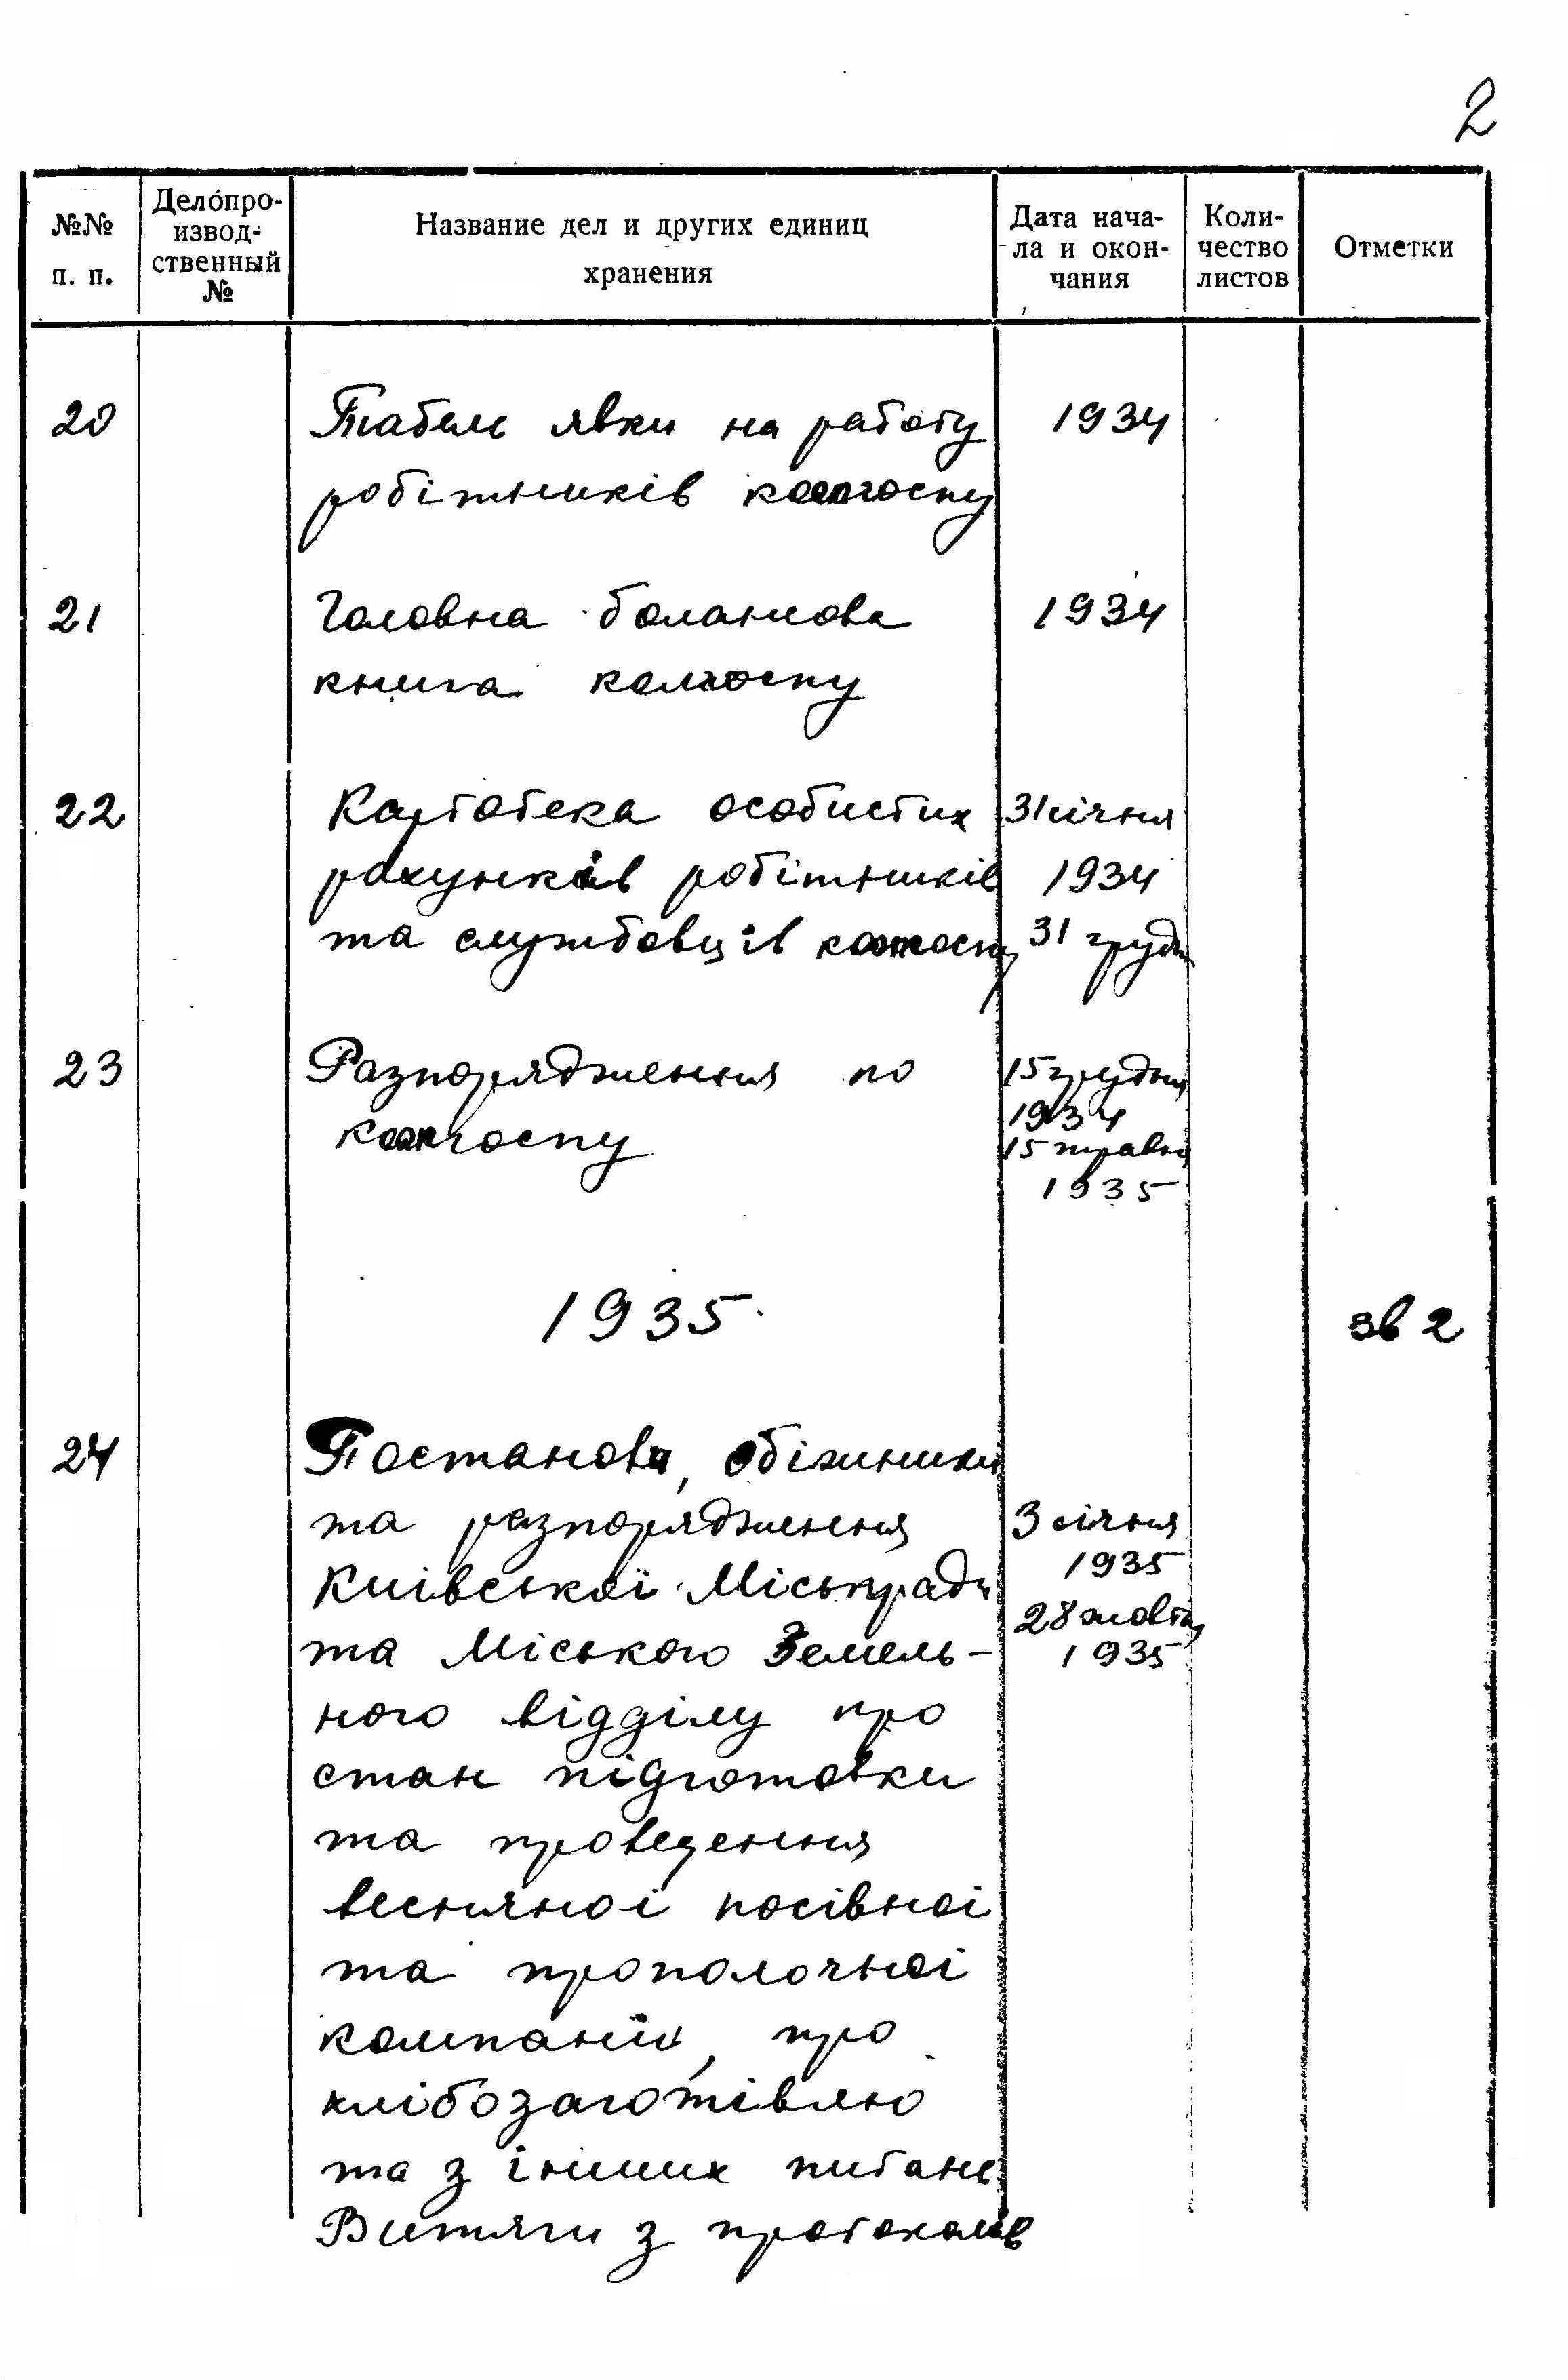 2
№№ п. п.
Делопро-
извод-
ственный
№
Название дел и других единиц
хранения
Дата нача-
ла и окон-
чания
Коли-
чество
листов
Отметки
20 Табель явки на работу 1934
робітників колгоспу
21 Головна балансова 1934
книга колгоспу
22 Картотека особистих 31 січня
рахунків робітників 1934
та службовців колгоспу 31 грудн
23 Разпорядження по 15 грудня
1934
колгоспу 15 травня
1935
1935 зв 2
24 Постанови, обіжники
та разпорядження 3 січня
1935
Київської Міськради
28 жовтня
та Міського Земель- 1935
ного відділу про
стан підготовки
та проведення
весняної посівної
та прополочної
кампаній, про
хлібозаготівлю
та з інших питань
Витяги з протоколів